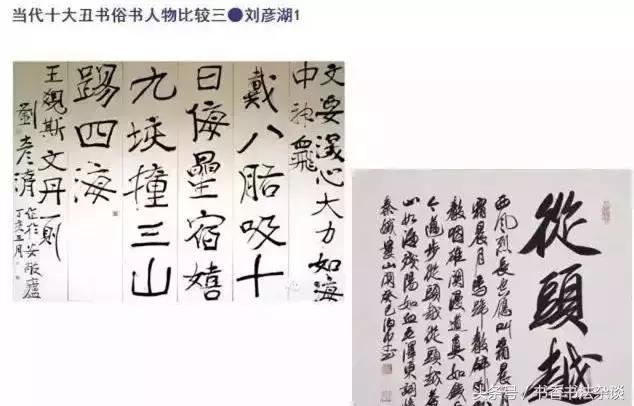 当代十大丑书俗书人物比较三●刘彦湖1
文要深心大力如海
中神飛
戴八肱吸十
日侮星宿嬉
九垓撞三山
踢四海
王覯斯文丹一則
丁亥五月
從頭越
西風烈長空雁叫霜晨月
霜晨月馬蹄聲碎
聲咽雄關漫道真如鐵
今邁步從頭越從頭越
山如海殘陽如血毛澤東詞
秦娥婁山關癸巳
头条号 / 书香书法杂谈